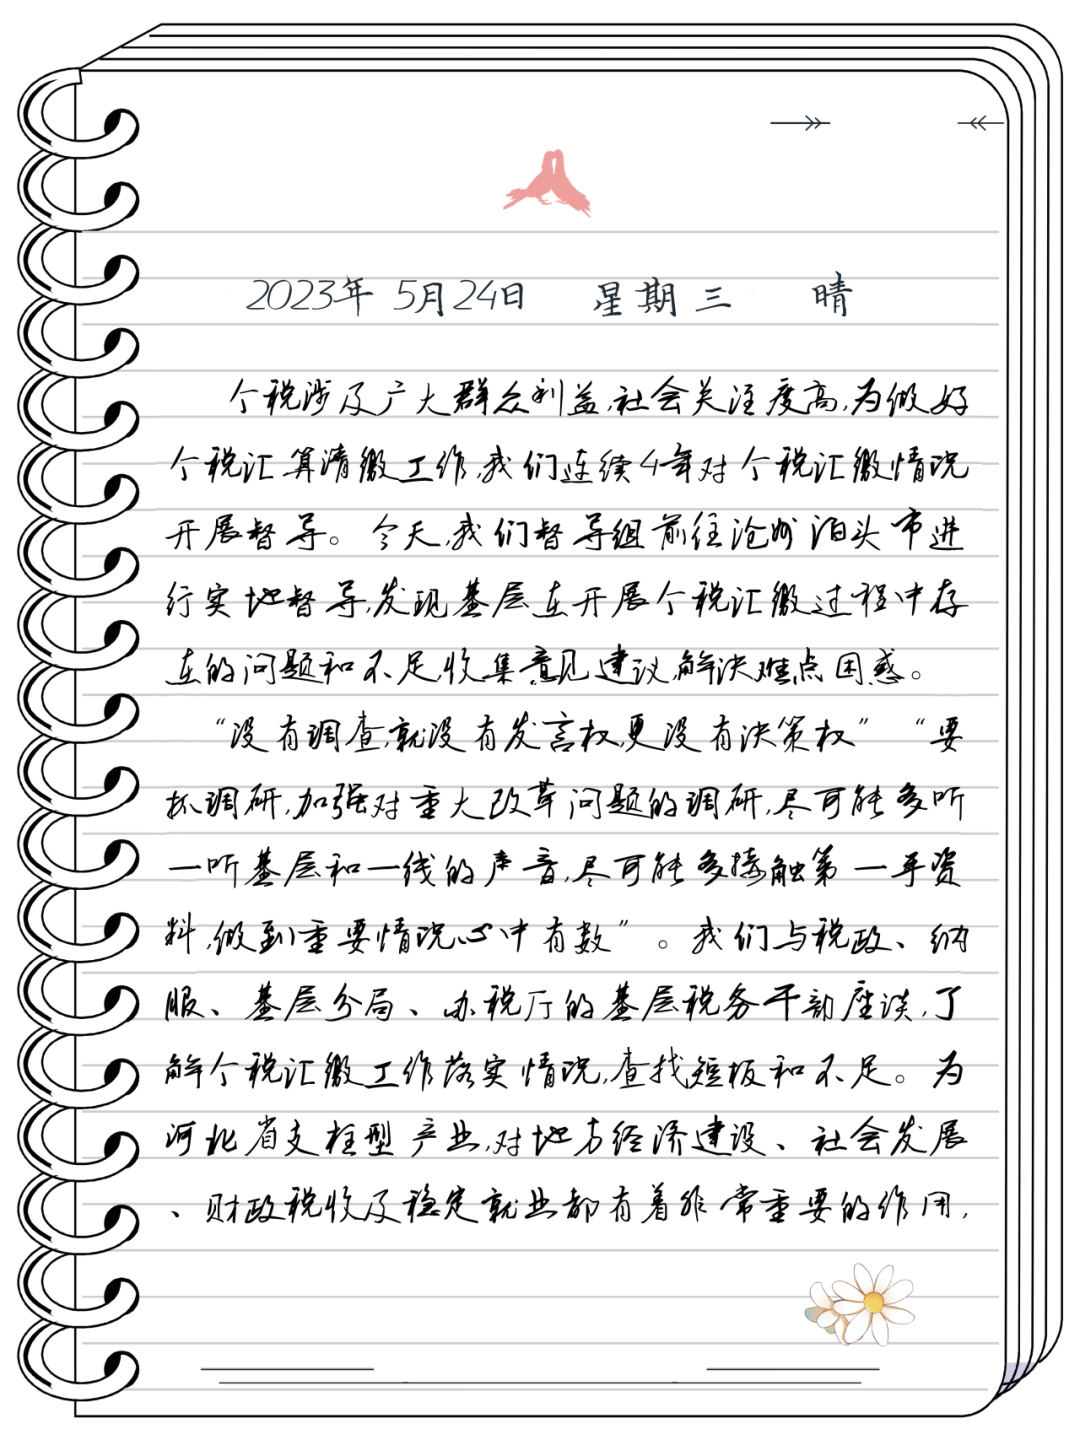 2023年 5月24日 星期三 晴
个税涉及广大群众利益,社会关注度高,为做好
个税汇算清缴工作,我们连续4年对个税汇缴情况
开展督导。今天,我们督导组前往沧州泊头市进
行实地督导,发现基层在开展个税汇缴过程中存
在的问题和不足,收集意见建议,解决难点困惑。
“没有调查,就没有发言权,更没有决策权”“要
抓调研,加强对重大改革问题的调研,尽可能多听
一听基层和一线的声音,尽可能多接触第一手资
料,做到重要情况心中有数”。我们与税政、纳
服、基层分局、办税厅的基层税务干部座谈,了
解个税汇缴工作落实情况,查找短板和不足。为
河北省支柱型产业,对地方经济建设、社会发展
、财政税收及稳定就业都有着非常重要的作用,